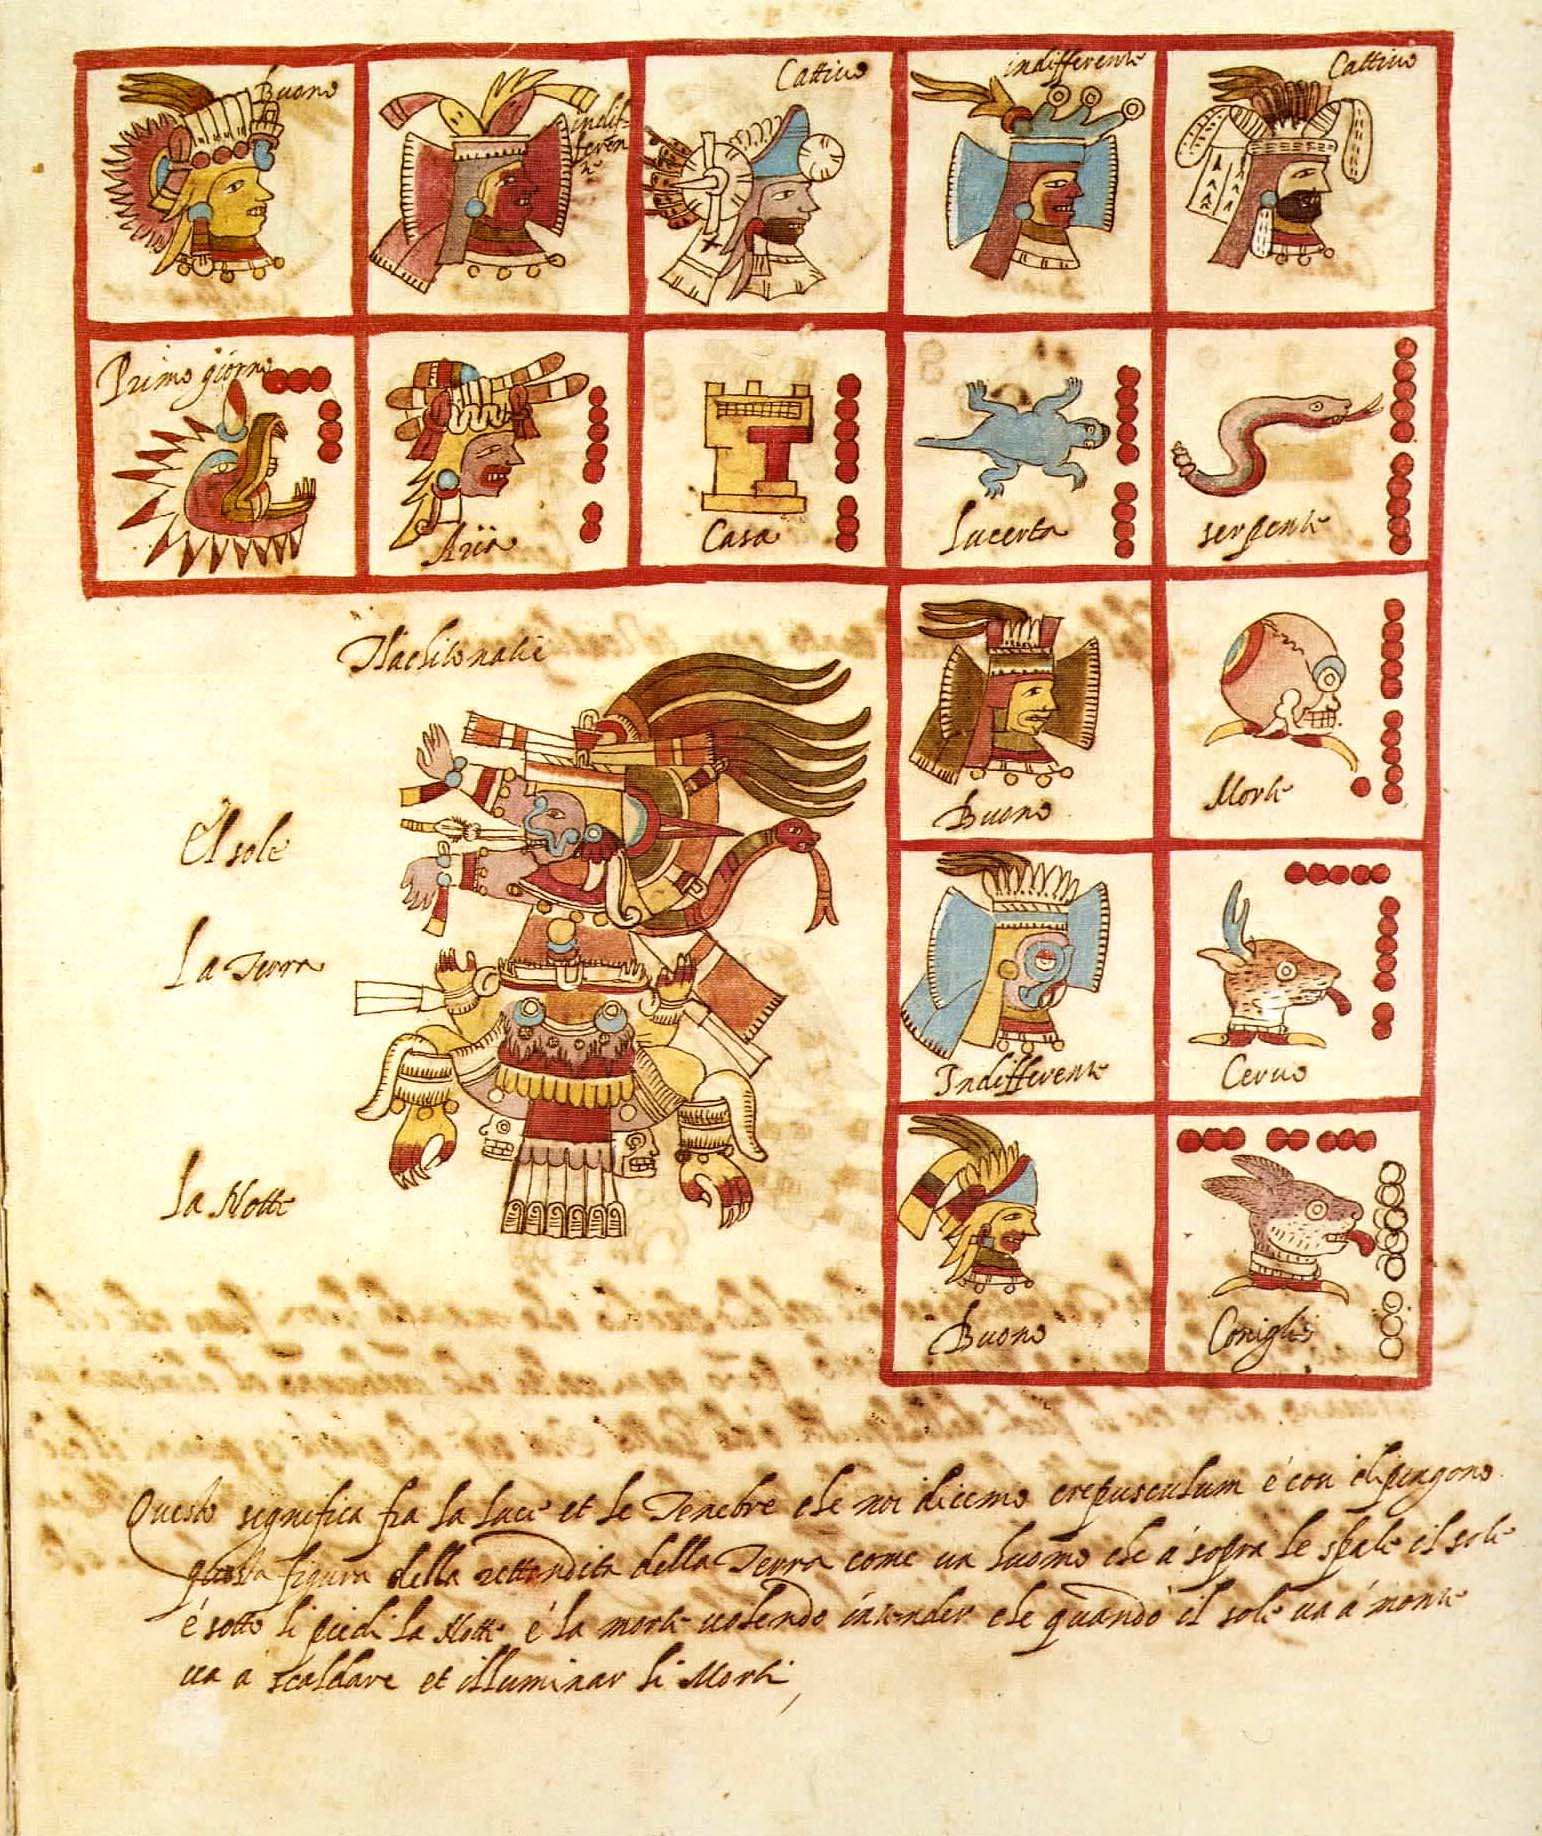 Buono
indif-
feren
te
Cattivo
indifferente
Cattivo
Primo giorno
Aria
Casa
Lucerta
serpente
Buono
Morte
Indifferente
Cervo
Buono
Coniglio
Tlachitonatie
Il sole
La Terra
La Notte
Questo significa fra la luce et le Tenebre che noi dicemo crepusculum é cosi dipingono
questa figura della rettondita della Terra come un huomo che á sopra le spale il sole
é sotto li piedi la Notte é la morte volendo intender che quando il sole va á monte
va á scaldare et illuminar li Morti,